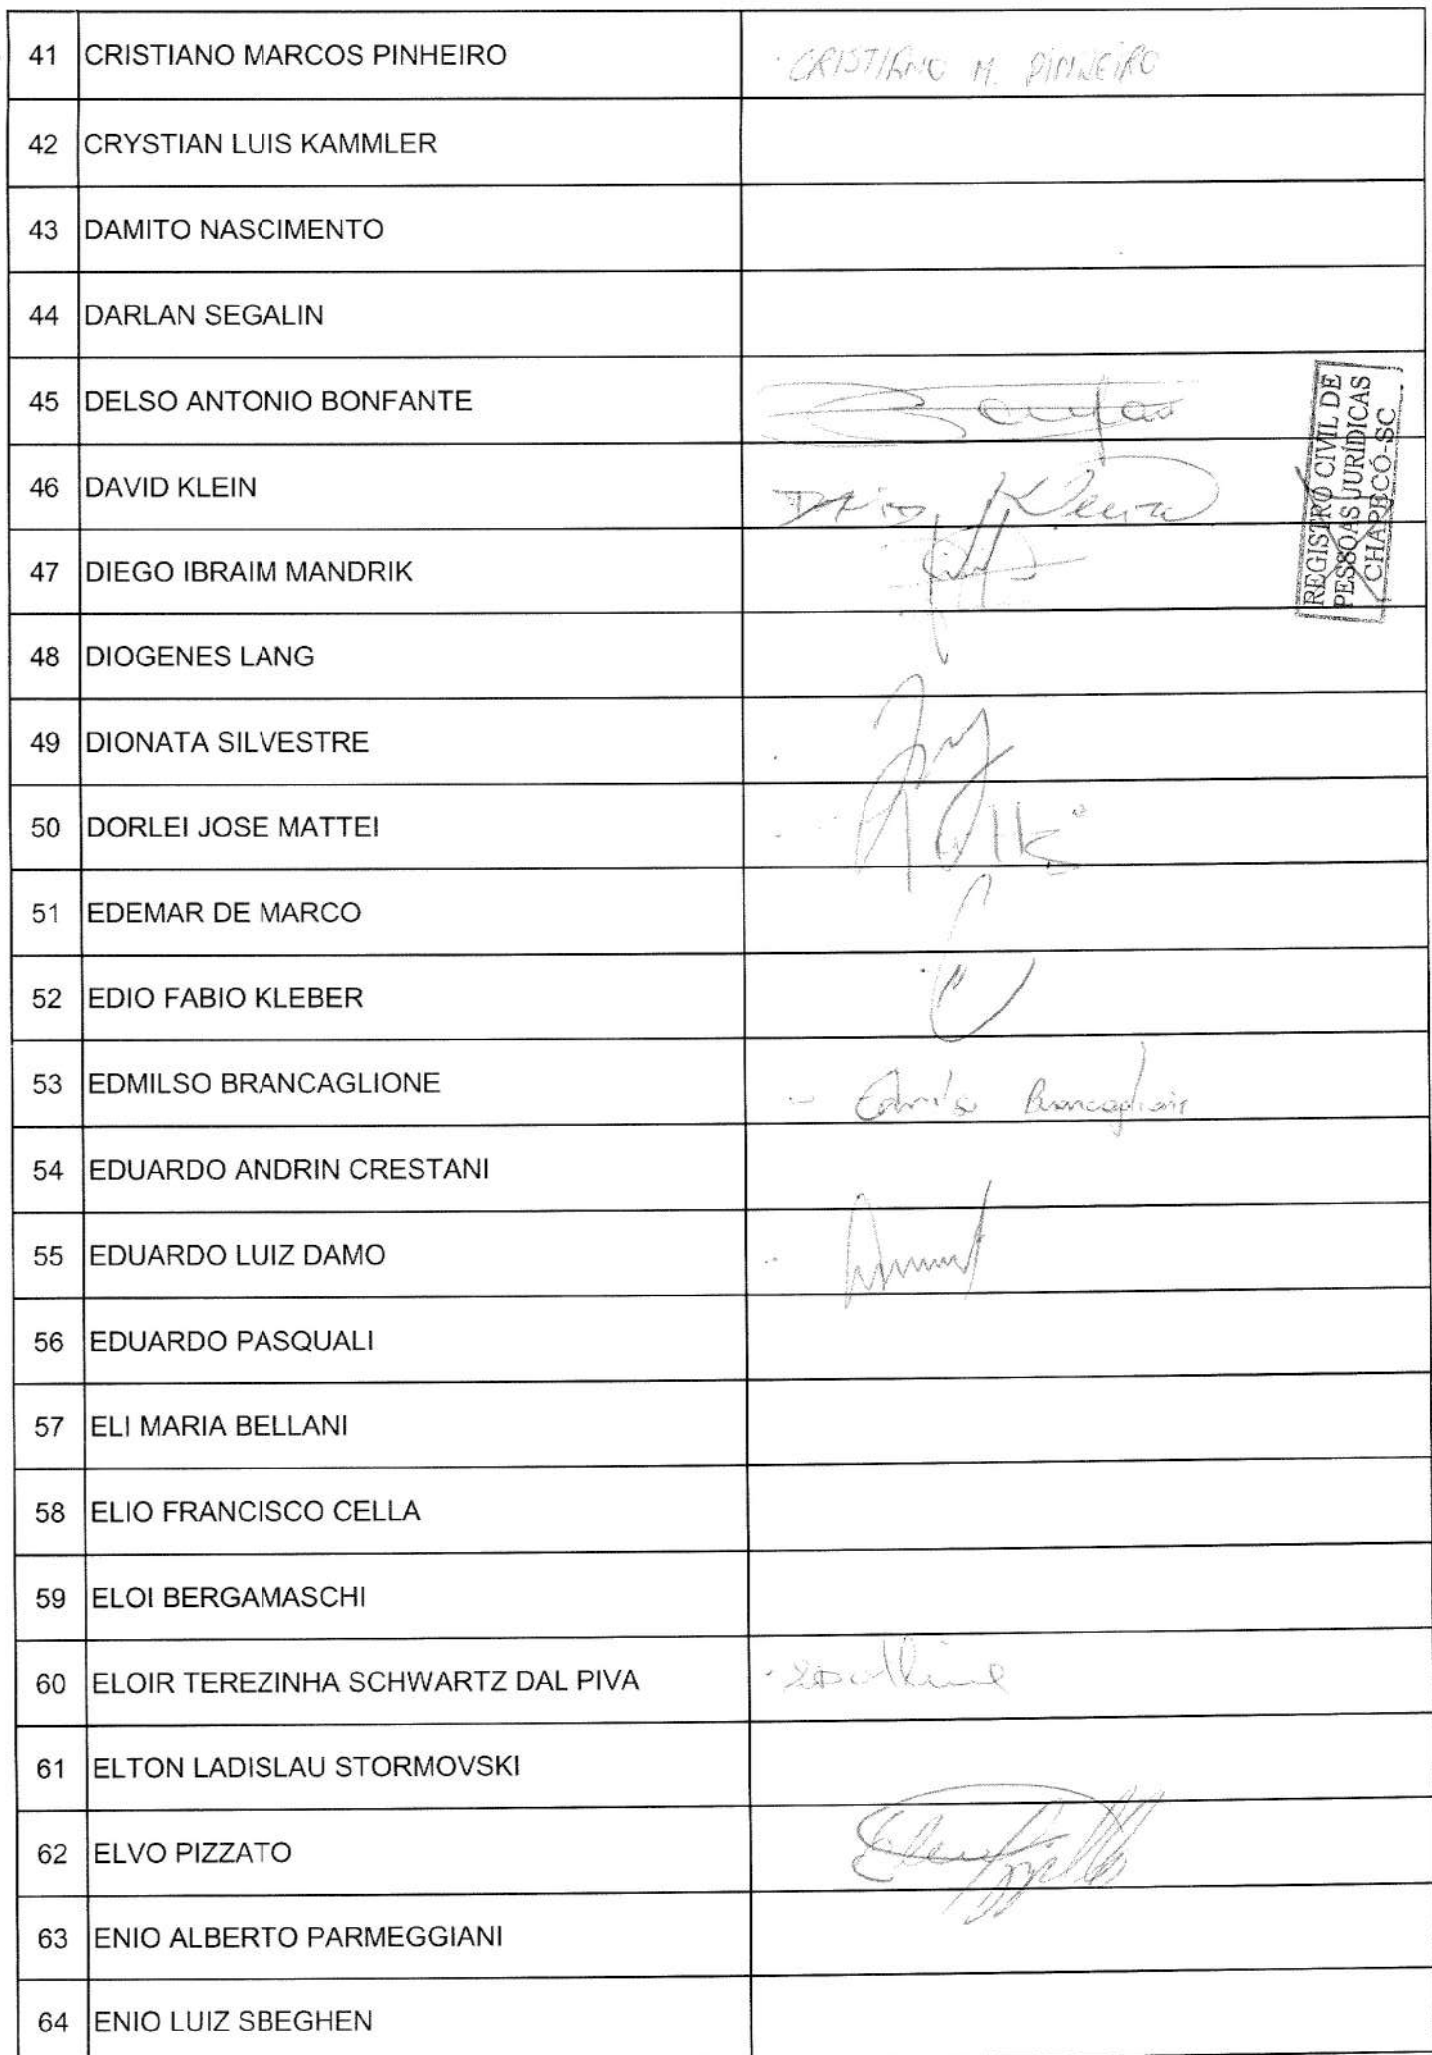 41 CRISTIANO MARCOS PINHEIRO CRISTIANO M. PINHEIRO
42 CRYSTIAN LUIS KAMMLER
43 DAMITO NASCIMENTO
44 DARLAN SEGALIN
45 DELSO ANTONIO BONFANTE
46 DAVID KLEIN
47 DIEGO IBRAIM MANDRIK
48 DIOGENES LANG
49 DIONATA SILVESTRE
50 DORLEI JOSE MATTEI
51 EDEMAR DE MARCO
52 EDIO FABIO KLEBER
53 EDMILSO BRANCAGLIONE Edmilso Brancaglione
54 EDUARDO ANDRIN CRESTANI
55 EDUARDO LUIZ DAMO
56 EDUARDO PASQUALI
57 ELI MARIA BELLANI
58 ELIO FRANCISCO CELLA
59 ELOI BERGAMASCHI
60 ELOIR TEREZINHA SCHWARTZ DAL PIVA
61 ELTON LADISLAU STORMOVSKI
62 ELVO PIZZATO
63 ENIO ALBERTO PARMEGGIANI
64 ENIO LUIZ SBEGHEN
REGISTRO CIVIL DE
PESSOAS JURÍDICAS
CHAPECÓ-SC